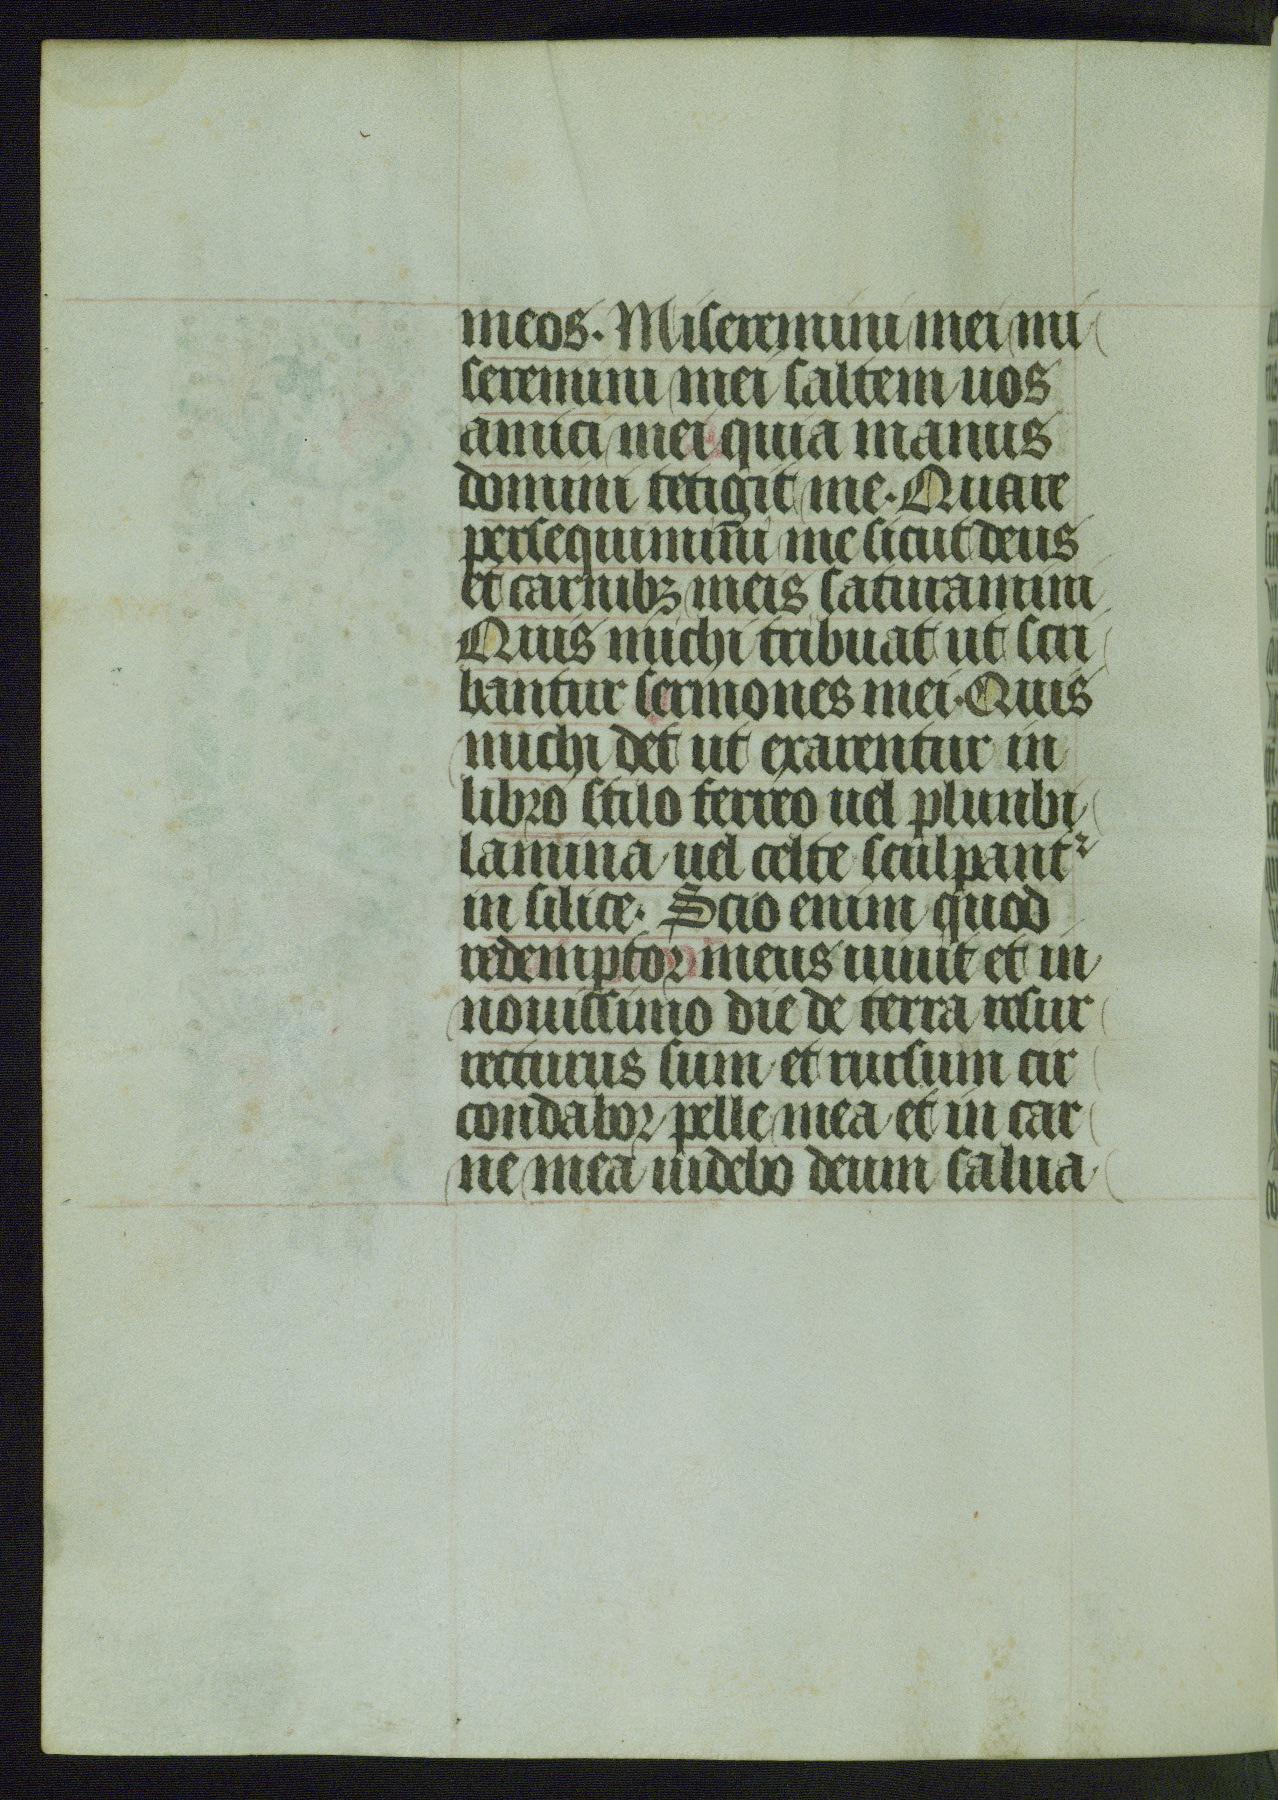 meos. Miseremini mei mi
seremini mei saltem uos
amici mei quia manus
domini tetigit me. Quare
persequimini me sicut deus
et carnibꝫ meis saturamini
Quis michi tribuat ut scri
bantur sermones mei. Quis
michi det ut exarentur in
libro stilo ferreo uel plunbi
lamina uel celte sculpantᷣ
in silice. Scio enim quod
redemptor meus uiuit et in
nouissimo die de terra resur
recturus sum et rursum cir
condabor pelle mea et in car
ne mea uidebo deum salua